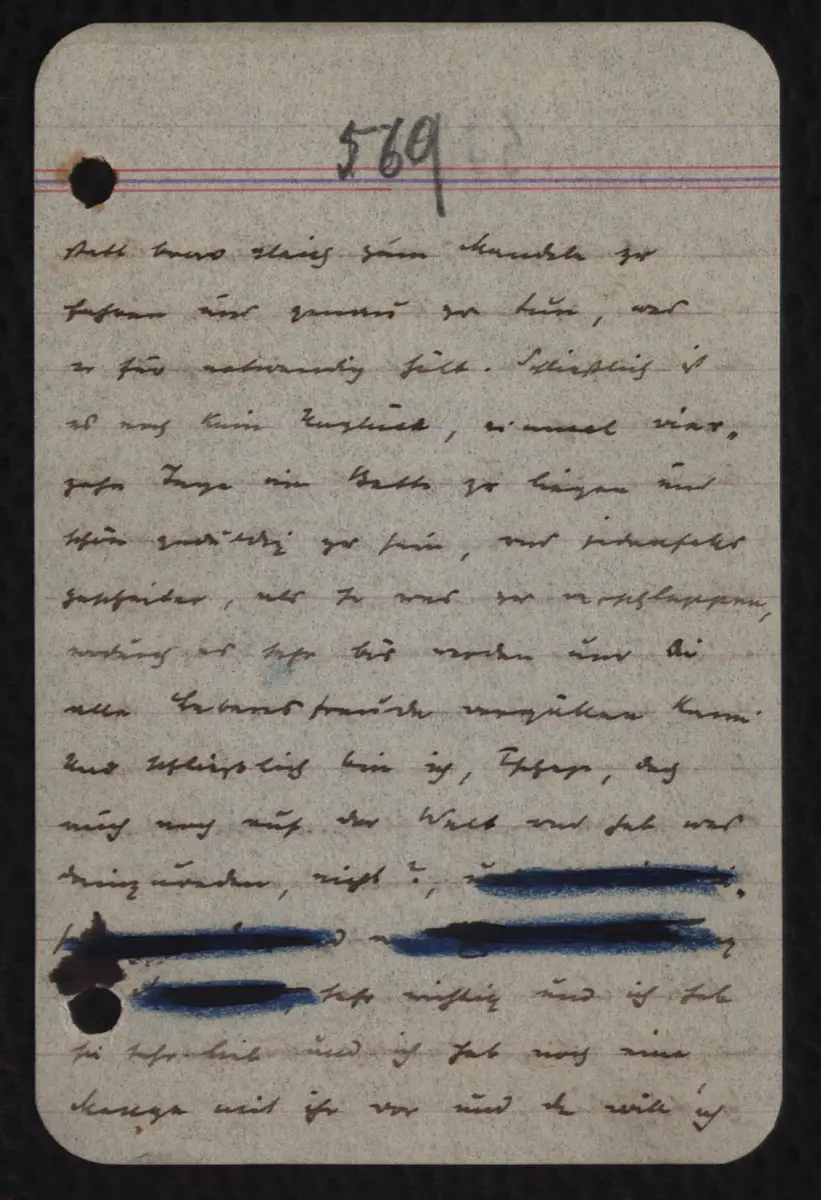 569
statt brav gleich zum Mandele zu
fahren und genau zu tun, was
er für notwendig hält. Schließlich ist
es noch kein Unglück, einmal vier-
zehn Tage im Bette zu liegen und
schön geduldig zu sein, und jedenfalls
gescheiter, als so was zu verschleppen,
wodurch es sehr bös werden und Di
alle Lebensfreude vergällen kann.
Und schließlich bin ich, doch
auch noch auf der Welt und hab was
dreinzureden, nicht?,
sehr wichtig und ich hab
sie sehr lieb und ich hab noch eine
Menge mit ihr vor und da will ich